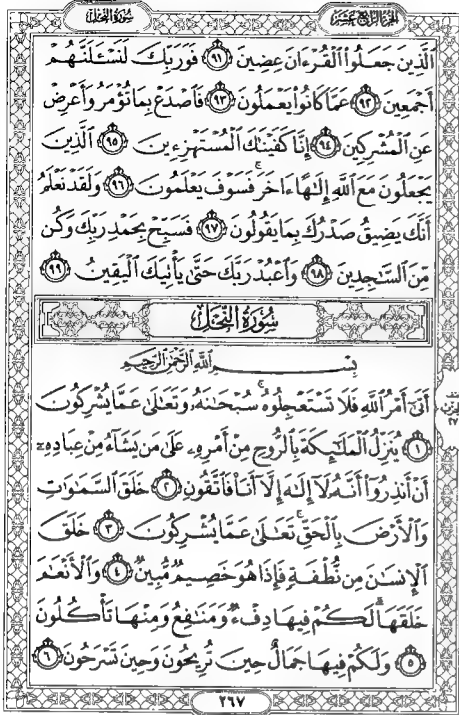 سُورَةُ النَّحْلِ
الجُزْءُ الرَّابِعَ عَشَرَ
الَّذِينَ جَعَلُوا۟ الْقُرْءَانَ عِضِينَ ٩١ فَوَرَبِّكَ لَنَسْـَٔلَنَّهُمْ
أَجْمَعِينَ ٩٢ عَمَّا كَانُوا۟ يَعْمَلُونَ ٩٣ فَاصْدَعْ بِمَا تُؤْمَرُ وَأَعْرِضْ
عَنِ الْمُشْرِكِينَ ٩٤ إِنَّا كَفَيْنَٰكَ الْمُسْتَهْزِءِينَ ٩٥ الَّذِينَ
يَجْعَلُونَ مَعَ اللَّهِ إِلَٰهًا ءَاخَرَ ۚ فَسَوْفَ يَعْلَمُونَ ٩٦ وَلَقَدْ نَعْلَمُ
أَنَّكَ يَضِيقُ صَدْرُكَ بِمَا يَقُولُونَ ٩٧ فَسَبِّحْ بِحَمْدِ رَبِّكَ وَكُن
مِّنَ السَّٰجِدِينَ ٩٨ وَاعْبُدْ رَبَّكَ حَتَّىٰ يَأْتِيَكَ الْيَقِينُ ٩٩
سُورَةُ النَّحْلِ
بِسْمِ اللَّهِ الرَّحْمَٰنِ الرَّحِيمِ
أَتَىٰٓ أَمْرُ اللَّهِ فَلَا تَسْتَعْجِلُوهُ ۚ سُبْحَٰنَهُۥ وَتَعَٰلَىٰ عَمَّا يُشْرِكُونَ
١ يُنَزِّلُ الْمَلَٰٓئِكَةَ بِالرُّوحِ مِنْ أَمْرِهِۦ عَلَىٰ مَن يَشَآءُ مِنْ عِبَادِهِۦٓ
أَنْ أَنذِرُوٓا۟ أَنَّهُۥ لَآ إِلَٰهَ إِلَّآ أَنَا۠ فَاتَّقُونِ ٢ خَلَقَ السَّمَٰوَٰتِ
وَالْأَرْضَ بِالْحَقِّ ۚ تَعَٰلَىٰ عَمَّا يُشْرِكُونَ ٣ خَلَقَ
الْإِنسَٰنَ مِن نُّطْفَةٍ فَإِذَا هُوَ خَصِيمٌ مُّبِينٌ ٤ وَالْأَنْعَٰمَ
خَلَقَهَا ۗ لَكُمْ فِيهَا دِفْءٌ وَمَنَٰفِعُ وَمِنْهَا تَأْكُلُونَ
٥ وَلَكُمْ فِيهَا جَمَالٌ حِينَ تُرِيحُونَ وَحِينَ تَسْرَحُونَ ٦
٢٦٧